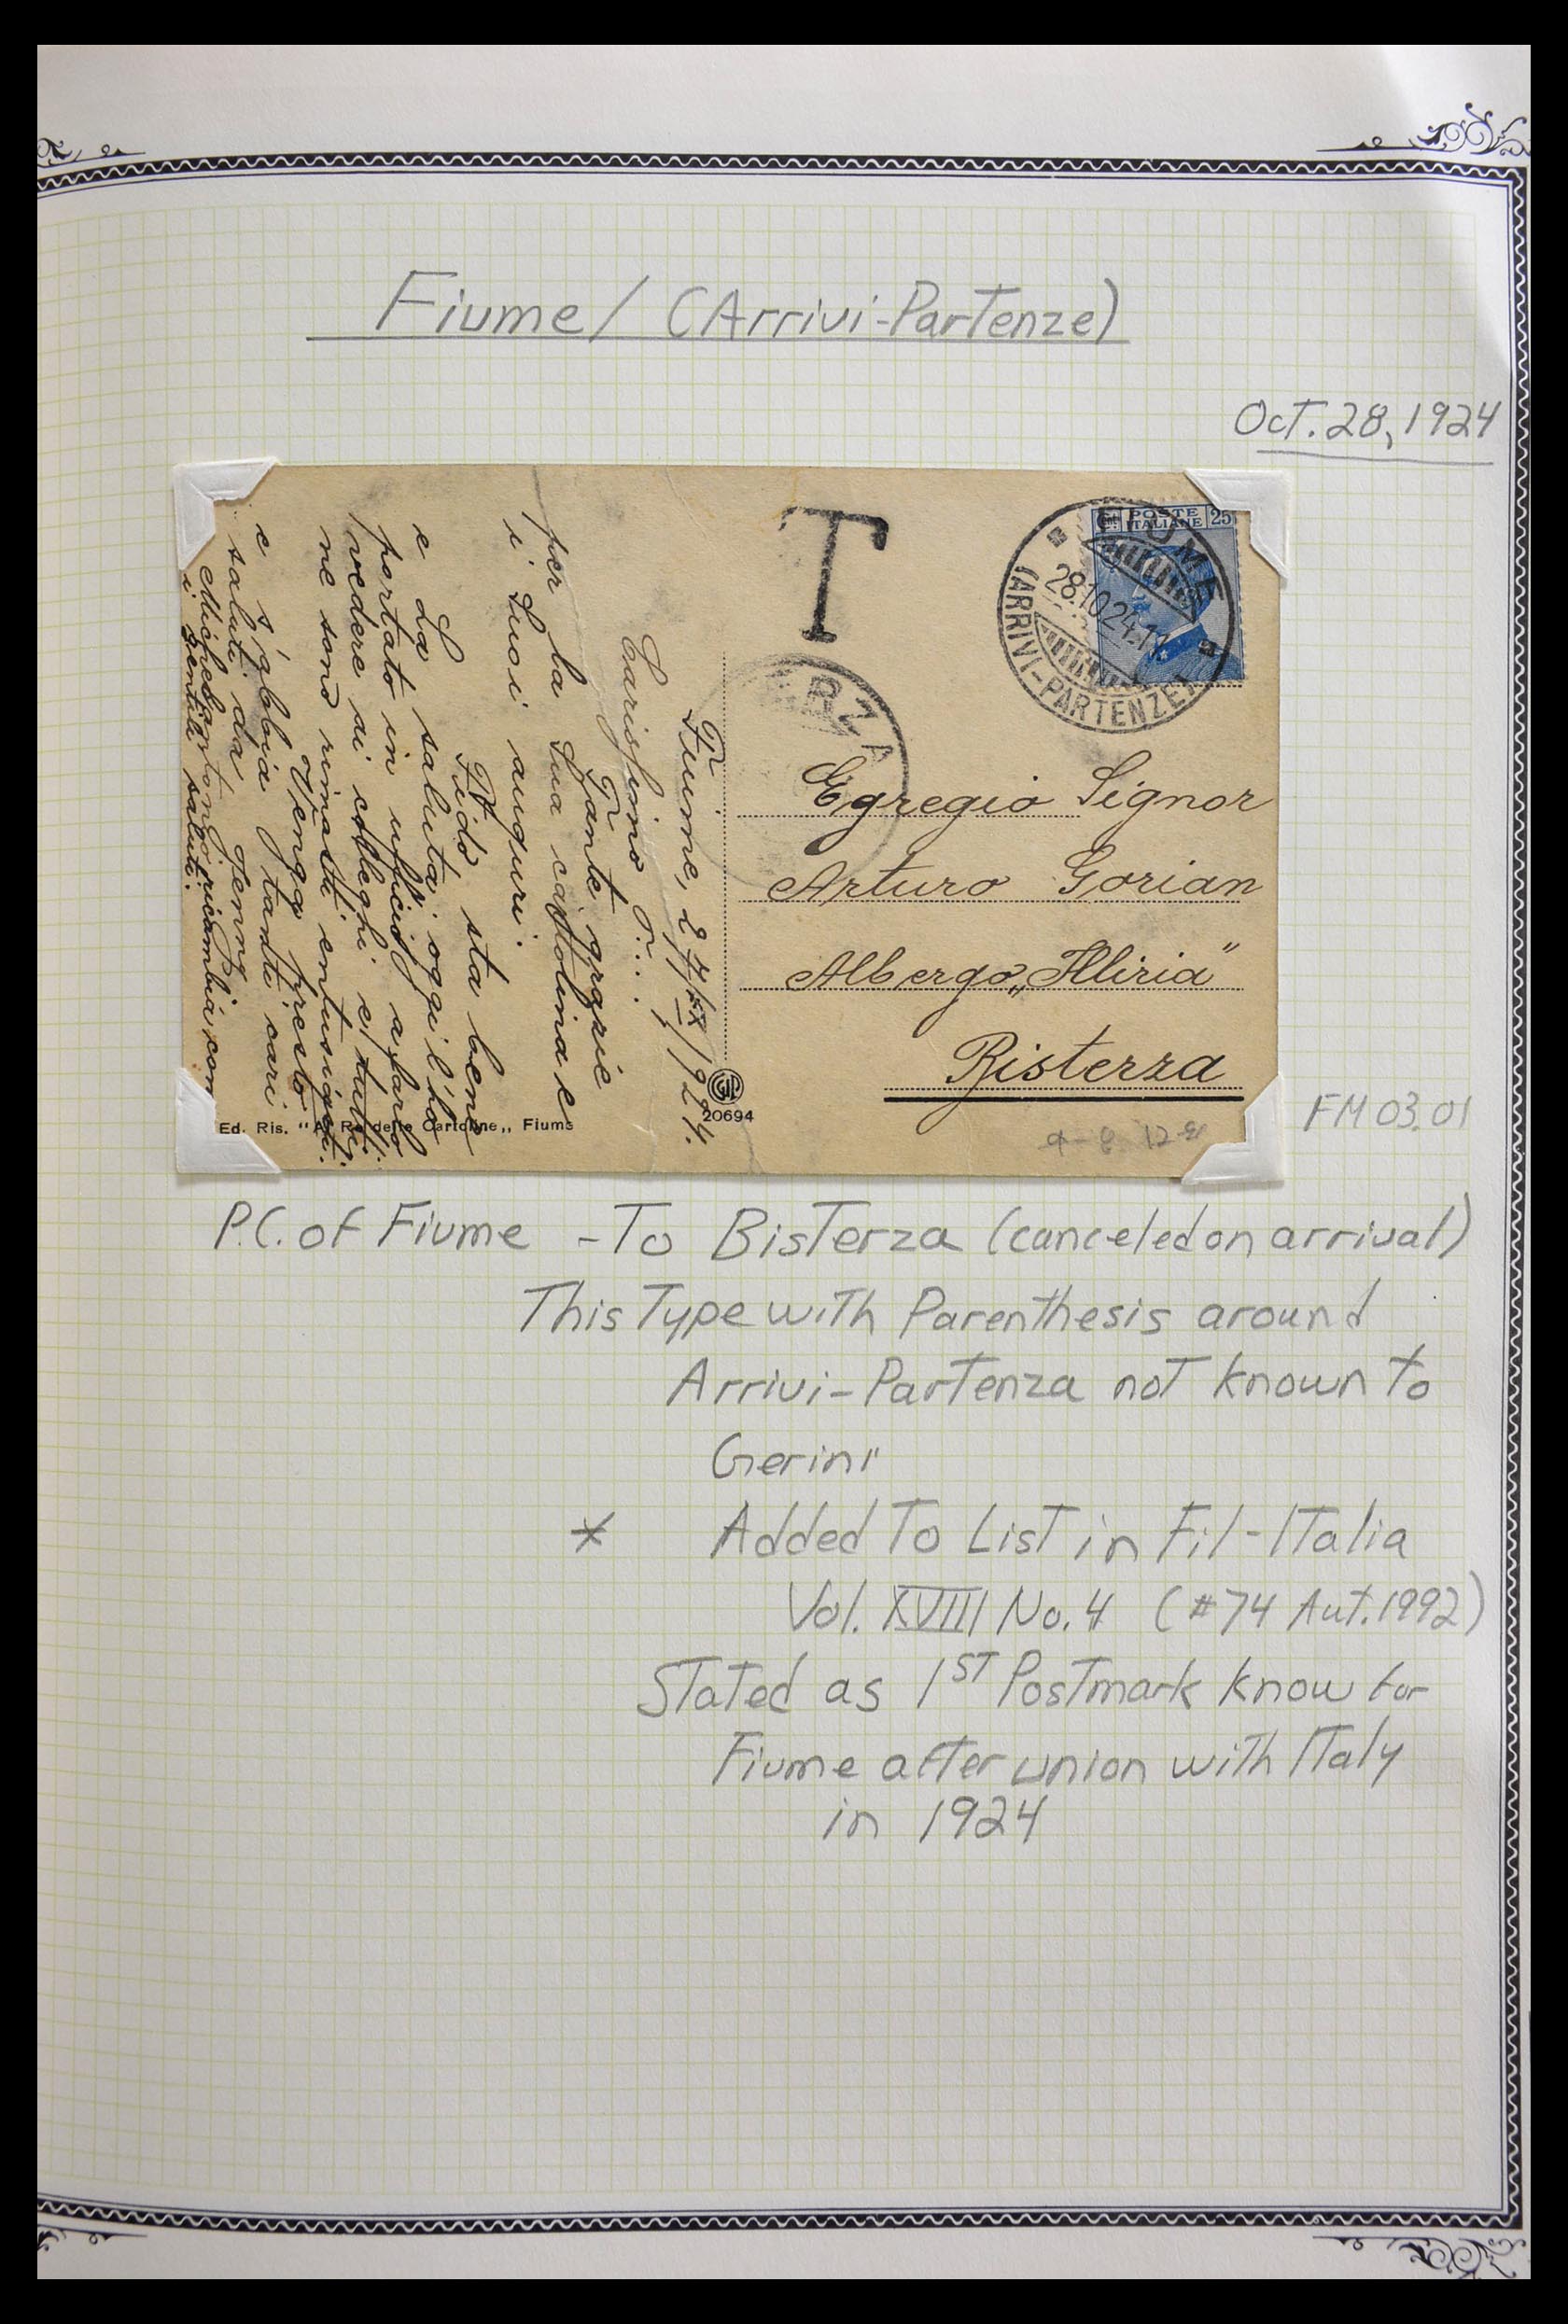 Fiume / (Arrivi-Partenze)
Oct. 28, 1924
T
POSTE
ITALIANE 25
FIUME
28.10.24.17
(ARRIVI-PARTENZE)
ERZA
Egregio Signor
Arturo Gorian
Albergo „Illiria"
Bisterza
Fiume, 27/X/1924.
Carissimo
Tante grazie
per la Sua cartolina e
i Suoi auguri.
Fido sta bene
e La saluta; oggi l'ho
portato in ufficio a farlo
vedere ai colleghi e tutti
ne sono rimasti entusiasti.
Venga presto
e s'abbia tanti cari
saluti da
Michelangelo ricambia con
i gentili saluti.
20694
Ed. Ris. "Al Re delle Cartoline„ Fiume
FM 03.01
P.C. of Fiume - To Bisterza (canceled on arrival)
This Type with Parenthesis around
Arrivi-Partenza not known to
Gerini
* Added To List in Fil-Italia
Vol. XVIII No. 4 (#74 Aut. 1992)
Stated as 1ST Postmark know for
Fiume after union with Italy
in 1924